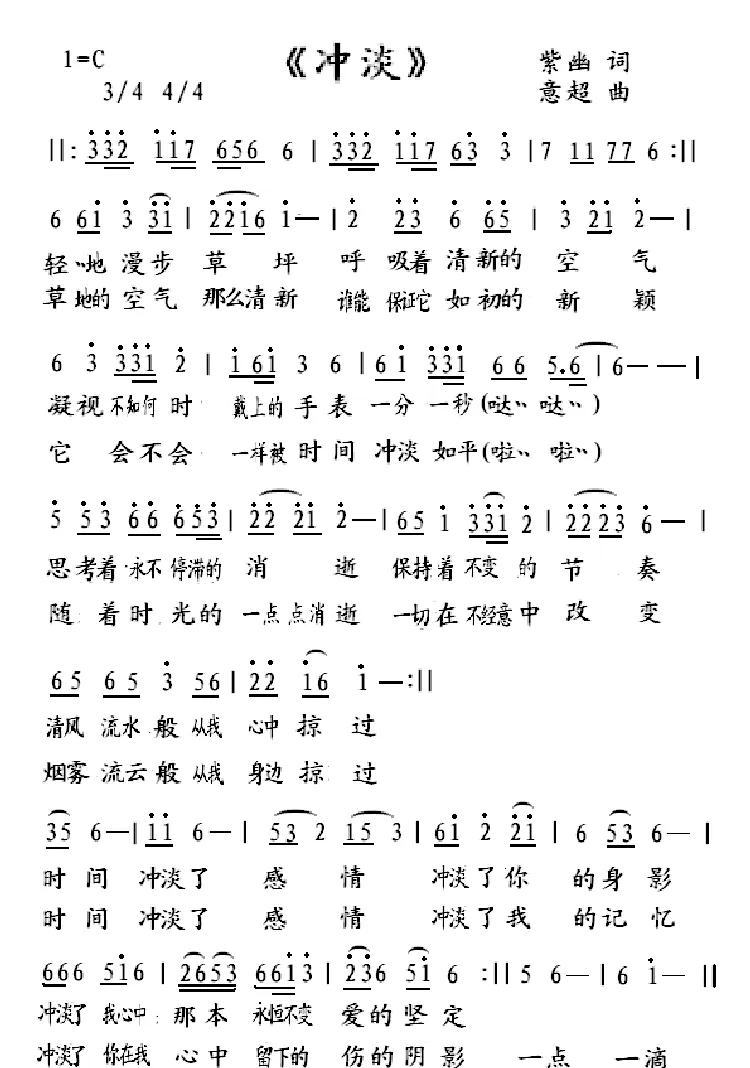 1=C 《冲淡》 紫幽 词
3/4 4/4 意超 曲
||: 332 117 656 6 | 332 117 63 3 | 7 11 77 6 :||
6 61 3 31 | 2216 1— | 2 23 6 65 | 3 21 2— |
轻、、地 漫步 草 坪 呼 吸着 清新的 空 气
草地的 空气 那么清新 谁能 保证它 如初的 新 颖
6 3 331 2 | 1 61 3 6 | 61 331 66 5.6 | 6— — |
凝视 不知何 时 戴上的 手表 一分 一秒(哒、、哒、、)
它 会不会 一样被 时间 冲淡 如平(啦、、啦、、)
5 53 66 653 | 22 21 2— | 65 1 331 2 | 2223 6— |
思考着 永不 停滞的 消 逝 保持着 不变 的 节 奏
随着时光的 一点点消逝 一切在 不经意中 改 变
65 65 3 56 | 22 16 1 —:||
清风 流水 般 从我 心中 掠 过
烟雾 流云般 从我 身边 掠过
35 6— | 11 6— | 53 2 15 3 | 61 2 21 | 6 53 6— |
时 间 冲淡了 感 情 冲淡了你 的身影
时 间 冲淡了 感 情 冲淡了我 的记忆
666 516 | 2653 6613 | 236 51 6 :|| 5 6— | 6 1— ||
冲淡了 我心中 那本 永恒不变 爱的坚定
冲淡了 你在我 心中 留下的 伤的阴影 一点 一滴